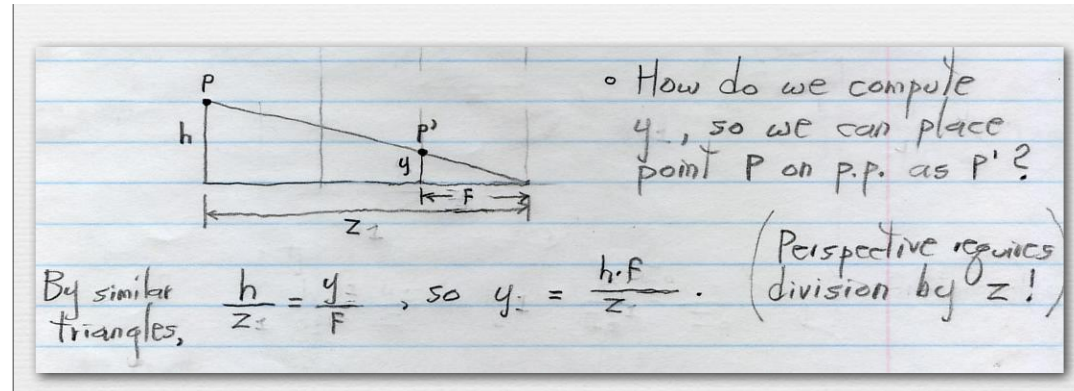 P
h
P'
y
F
Z
• How do we compute
y, so we can place
point P on p.p. as P'?
By similar triangles, h/z = y/F, so y = h·F/z. (Perspective requires division by z!)